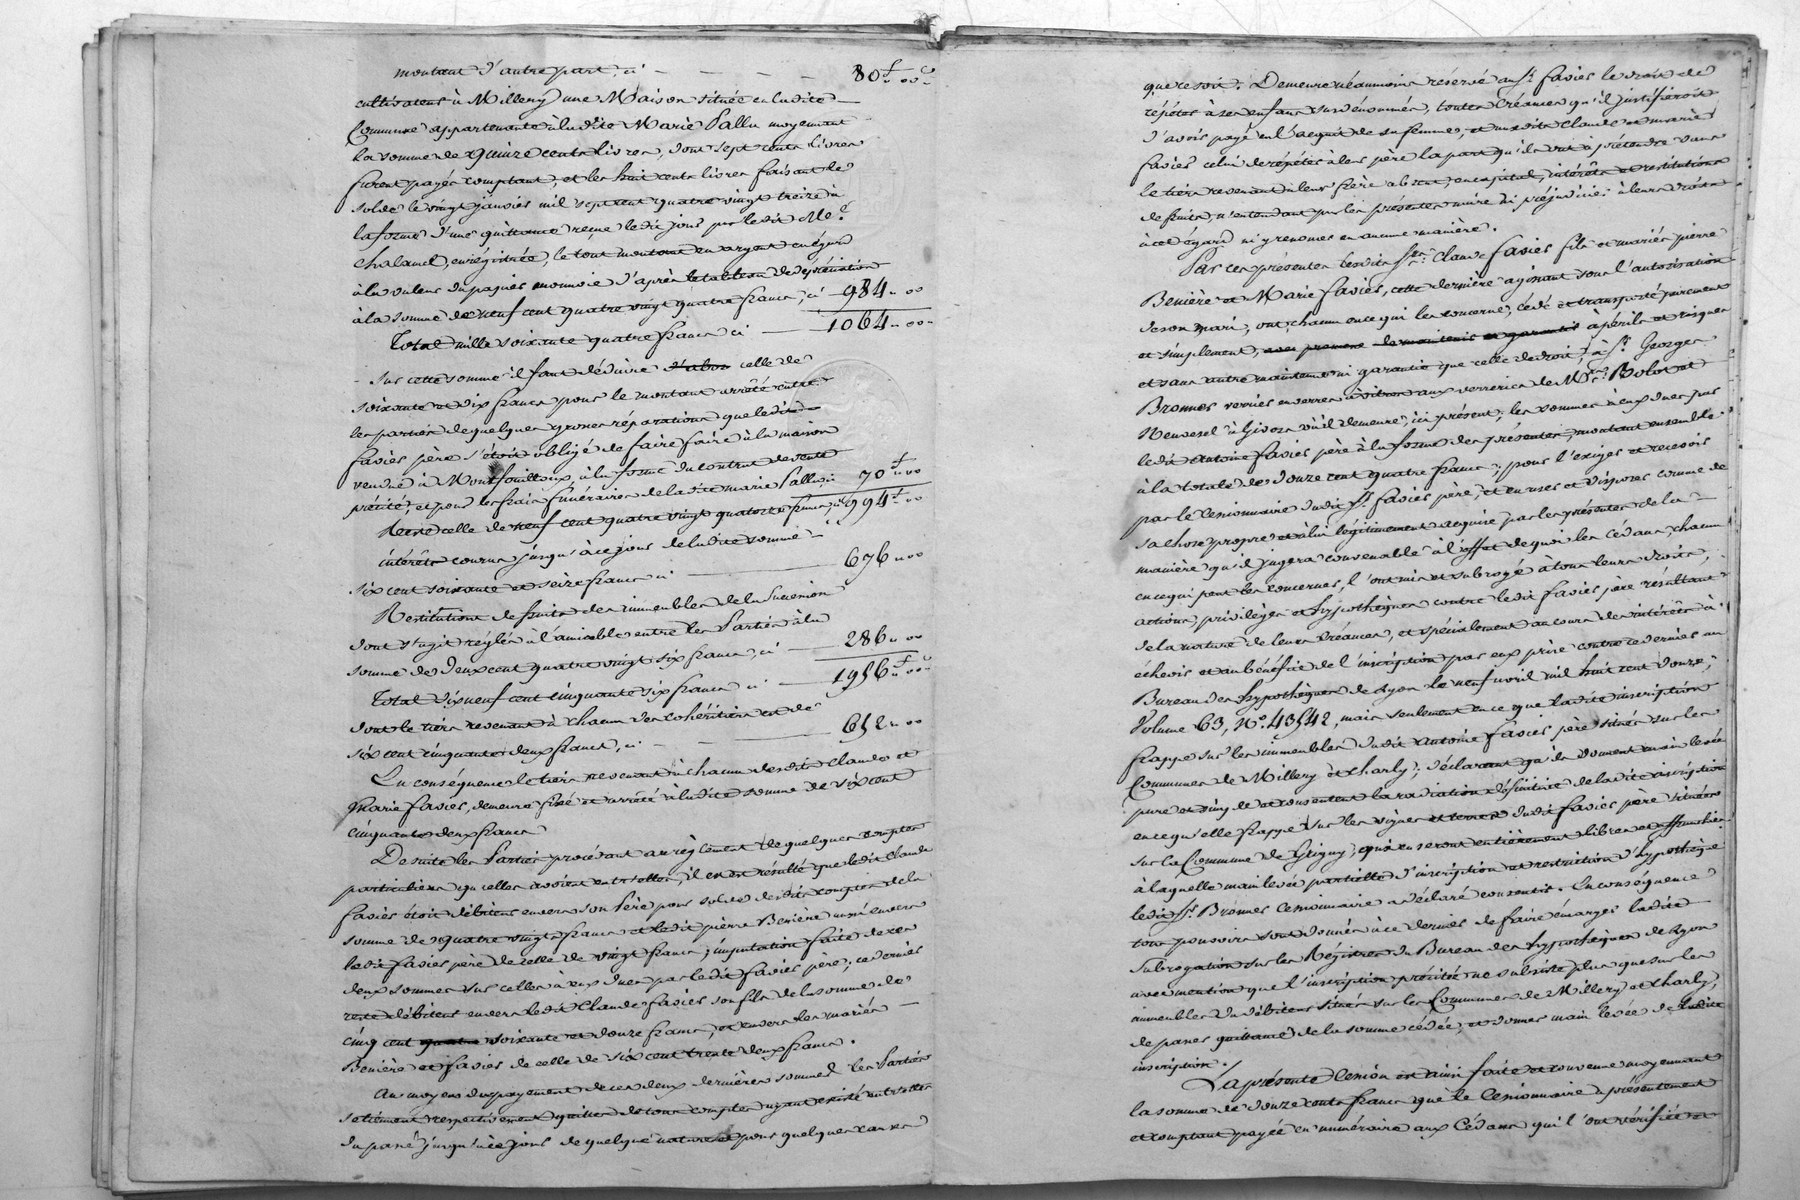 montant d'autre part, ci - - - - 80f „ 00c
cultivateur à Millery, une Maison située en ladite
Commune appartenante à ladite Marie Pallu moyennant
la somme de quinze cents livres, dont sept cents livres
furent payés comptant, et les huit cents livres faisant le
solde le vingt janvier mil sept cent quatre vingt treize à
la forme d'une quittance reçue ledit jour par ledit Me
Chalamel, enrégistrée, le tout montant en argent eu égard
à la valeur du papier monnoie d'après le tableau de dépréciation
à la somme de neuf cent quatre vingt quatre francs, ci 984 „ 00
Total mille soixante quatre francs ci 1064 „ 00
Sur cette somme il faut déduire d'abor celle de
soixante et dix francs pour le montant arrêté entre
les parties de quelques grosses réparations que ledit
favier père s'étoit obligé de faire faire à la maison
vendue à Montfouilloux, à la forme du contrat de vente
précité, et pour les frais funéraires de ladite marie Pallu, ci 70f „ 00
Reste celle de neuf cent quatre vingt quatorze francs, ci 994f „ 00
intérêts courus jusqu'à ce jour de ladite somme
six cent soixante et seize francs ci 676 „ 00
Restitution de fruits des immeubles de la Succession
dont s'agit réglés à l'amiable entre les Parties à la
somme de deux cent quatre vingt six francs, ci 286 „ 00
Total dix neuf cent cinquante six francs ci 1956f „ 00c
dont le tiers revenant à chacun des cohéritiers est de
six cent cinquante deux francs, ci 652 „ 00
En conséquence le tiers revenant à chacun desdits Claude et
Marie favier, demeure fixé et arrêté à ladite somme de six cent
cinquante deux francs
De suite les Parties procédant au règlement de quelques comptes
particuliers qu'elles avoient entr'elles, il en est résulté que ledit Claude
favier étoit débiteur envers son Père pour solde desdits comptes de la
somme de quatre vingt francs et ledit pierre Benière aussi envers
ledit favier père de celle de vingt francs; imputation faite de ces
deux sommes sur celles à eux dues par ledit favier père; ce dernier
reste débiteur envers ledit Claude favier son fils de la somme de
cinq cent quatre soixante et douze francs, et envers les mariés
Benière et favier de celle de six cent trente deux francs.
Au moyen du payement de ces deux dernières sommes les Parties
se tiennent respectivement quittes de tous comptes ayant existé entr'elles
du passé jusqu'à ce jour de quelque nature et pour quelque cause
que ce soit. Demeure néanmoins réservé au Sr favier le droit de
répéter à ses enfans susdénommés, toutes créances qu'il justifieroit
d'avoir payé en l'acquit de sa femme, et auxdits Claude et marie
favier celui de répéter à leur père la part qu'ils ont à prétendre dans
le tiers revenant à leur frère absent, en capital, intérêts et restitutions
de fruits, n'entendant par les présentes nuire ni préjudicier à leurs droits
à cet égard ni y renoncer en aucune manière.
Par ces présentes lesdits Srs Claude favier fils et mariés pierre
Benière et Marie favier, cette dernière agissant sous l'autorisation
de son mari, ont, chacun en ce qui les concerne, cédé et transporté purement
et simplement, avec promesse de maintenir et garantir à périls et risques
et sans autre maintenue ni garantie que celle de droit, à Sr Georges
Bronner verrier en verres à vitres aux verreries de Mrs Bolot et
Neuvesel à Givors où il demeure, ici présent, les sommes à eux dues par
ledit Antoine favier père à la forme des présentes, montant ensemble
à la totale de douze cent quatre francs; pour l'exiger et recevoir
par le Cessionnaire dudit Sr favier père, et en user et disposer comme de
sa chose propre et à lui légitimement acquise par les présentes de la
manière qu'il jugera convenable à l'effet de quoi les Cédans, chacun
en ce qui peut les concerner, l'ont mis et subrogé à tous leurs droits,
actions, privilèges et hypothèques contre ledit favier père résultant
de la nature de leur Créance, et spécialement au cours des intérêts à
échoir et au bénéfice de l'inscription par eux prise contre ce dernier au
Bureau des hypothèques de Lyon le neuf avril mil huit cent douze,
Volume 63, No. 43542, mais seulement en ce que ladite inscription
frappe sur les immeubles dudit Antoine favier père situés sur les
Communes de Millery et Charly; déclarant qu'ils donnent main levée
pure et simple et consentent la radiation définitive de ladite inscription
en ce qu'elle frappe sur les vignes et terres dudit favier père situées
sur la Commune de Grigny, qui en seront entièrement libres et affranchies
à laquelle main levée partielle d'inscription et restriction d'hypothèque
ledit Sr Bronner Cessionnaire a déclaré consentir. En conséquence
tous pouvoirs sont donnés à ce dernier de faire émarger ladite
Subrogation sur les Régistres du Bureau des hypothèques de Lyon
avec mention que l'inscription précitée ne subsiste plus que sur les
immeubles du débiteur situés sur les Communes de Millery et Charly,
de passer quittance de la somme cédée, et donner main levée de ladite
inscription.
La présente Cession est ainsi faite et convenue moyennant
la somme de douze cents francs que le Cessionnaire a présentement
et comptant payée en numéraire aux Cédans qui l'ont vérifiée et